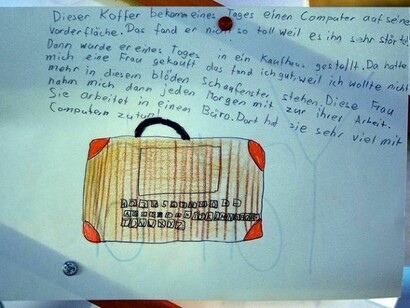 Dieser Koffer bekam eines Tages einen Computer auf seine
Vorderfläche. Das fand er nicht so toll weil es ihn sehr störte.
Dann wurde er eines Tages in ein Kaufhaus gestellt. Da hatte
mich eine Frau gekauft das fand ich gut weil ich wollte nicht
mehr in diesem blöden Schaufenster stehen. Diese Frau
nahm mich dann jeden Morgen mit zur ihrer Arbeit.
Sie arbeitet in einem Büro. Dort hat sie sehr viel mit
Computern zutun!